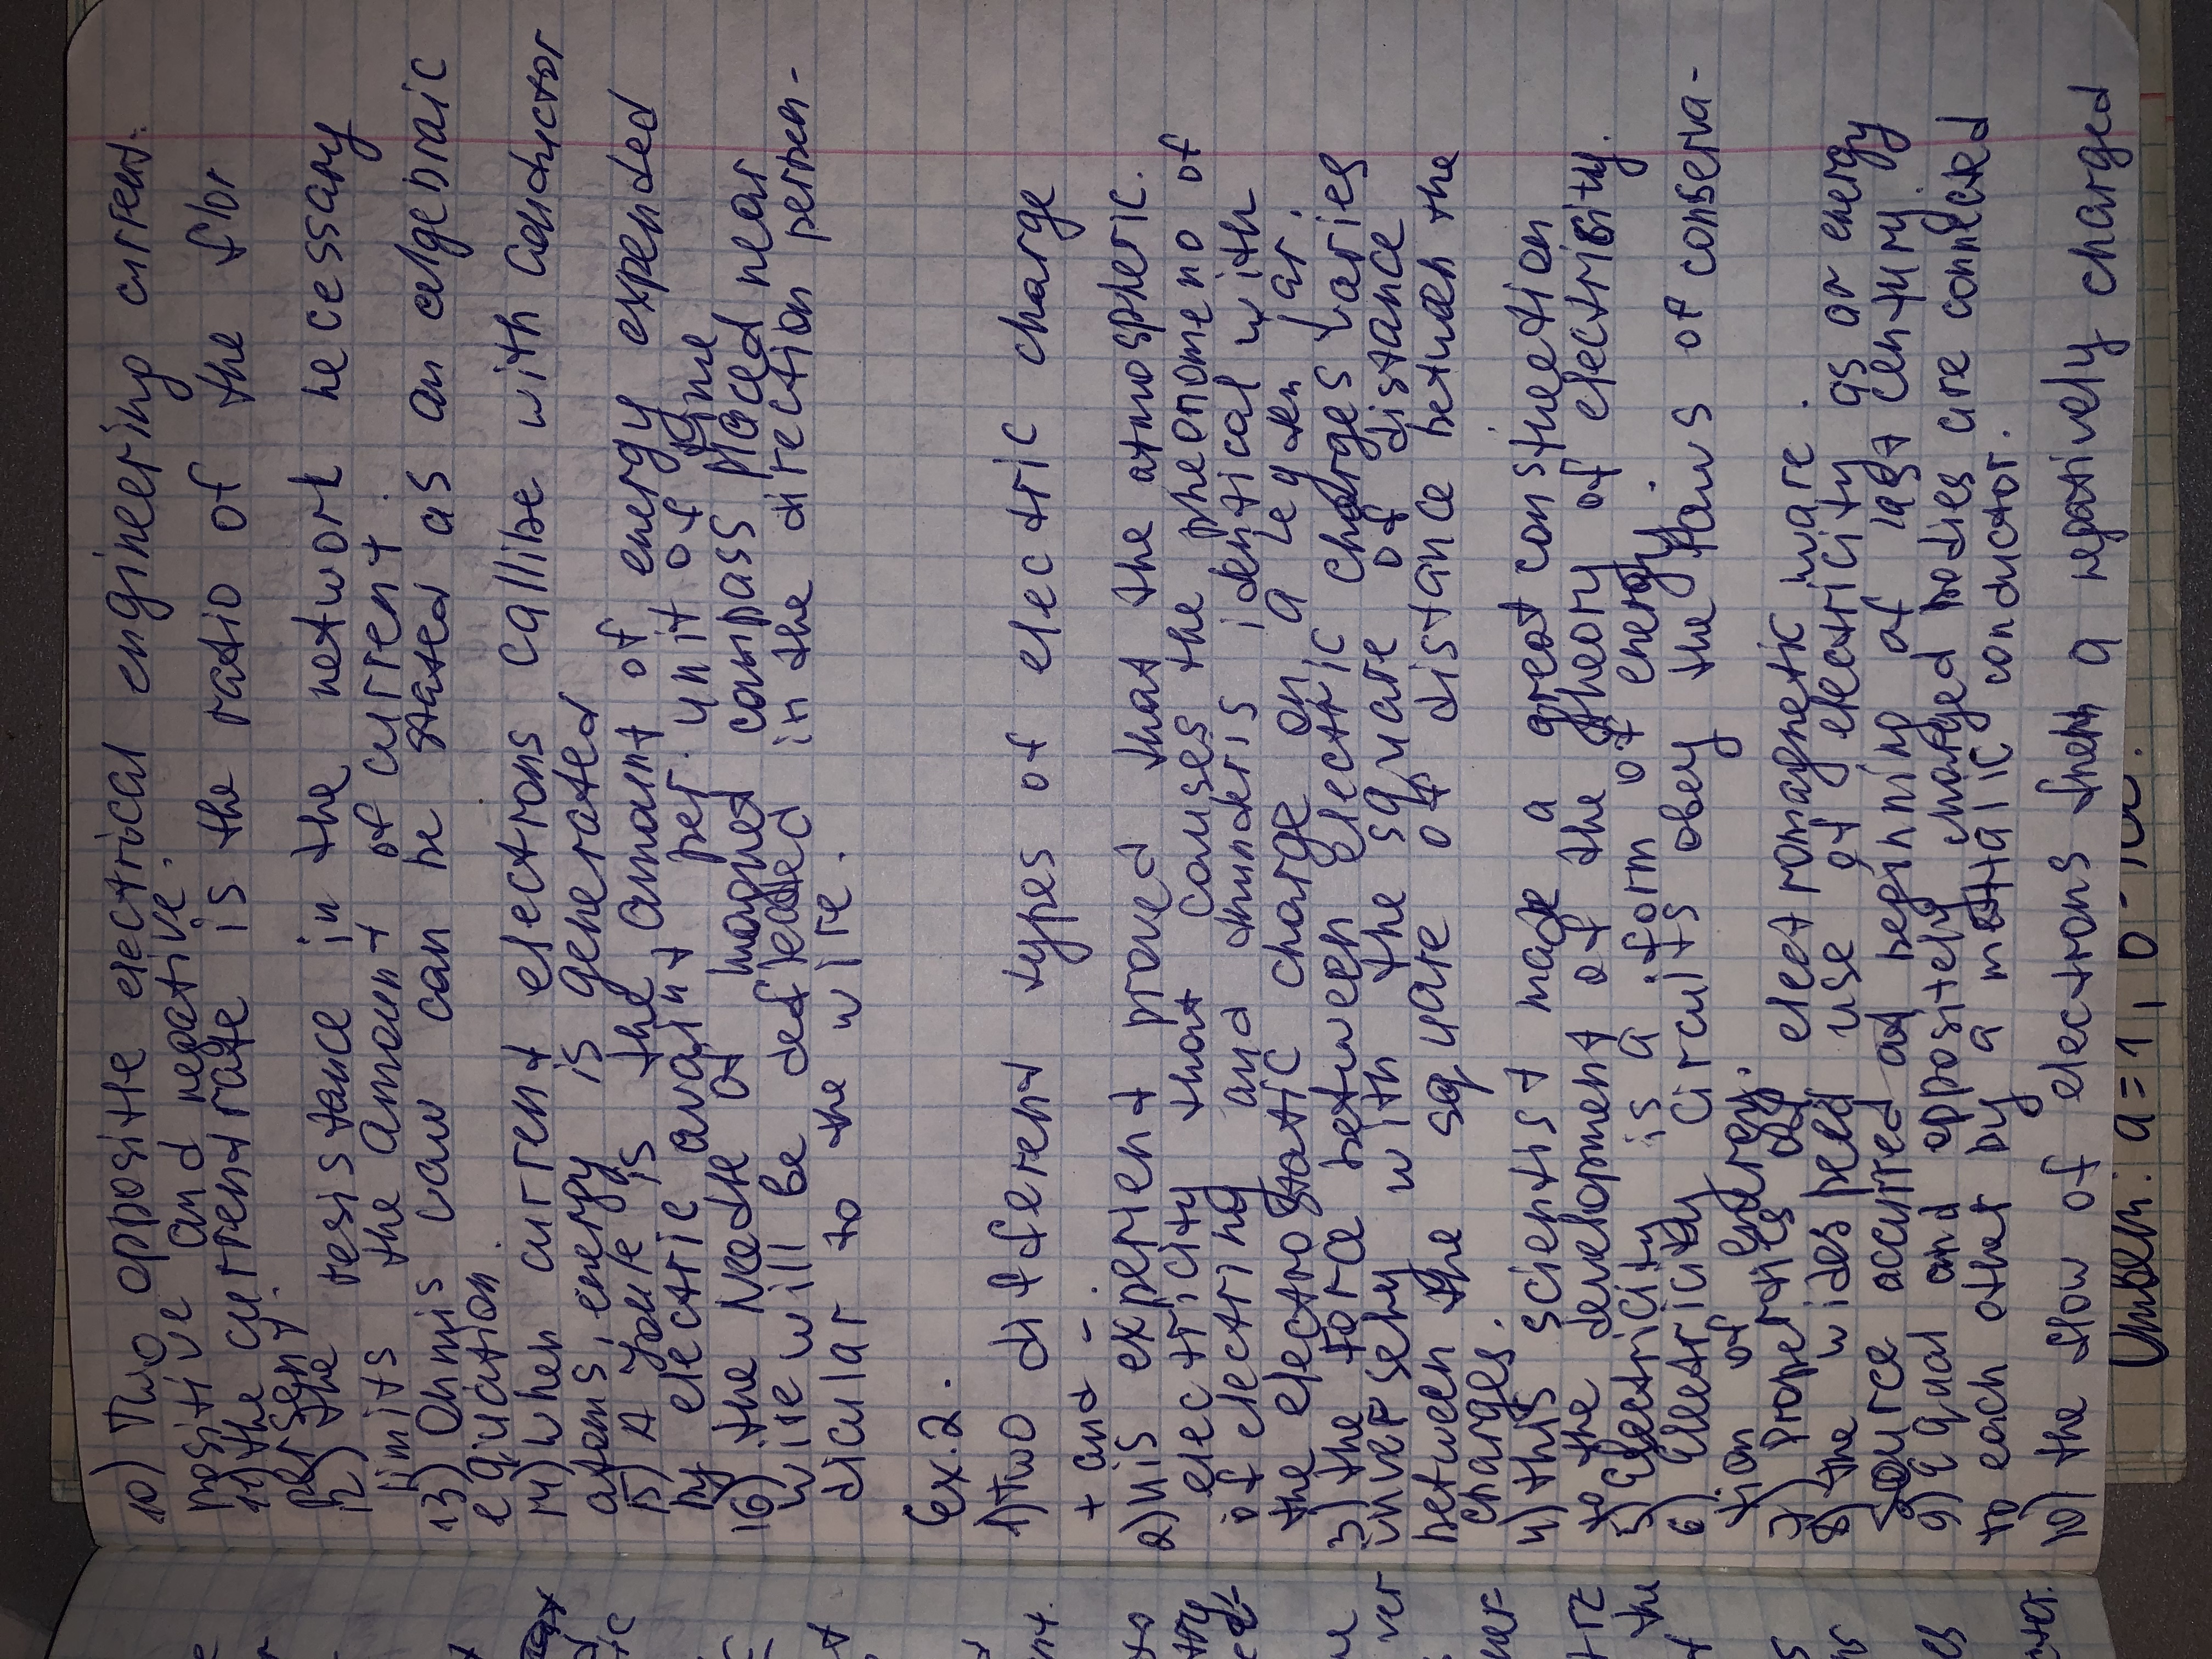 10) Two opposite electrical engineering current:
positive and negative.
11) the current rate is the ratio of the flor
per sent.
12) the resistance in the network necessary
limits the amount of current.
13) Ohmis law can be stated as an algebraic
equation.
14) when current electrons callise with conductor
atoms, energy is generated
15) A Joule is the amount of energy expended
by electric avarint per unit of tyme
16) the Nedle of magnet compass placed near
wire will be defleated in the direction perpen-
dicular to the wire.
Ex. 2.
1) Two different types of electric charge
+ and -.
2) his experient proved that the atmospheric.
electricity that causes the pheonomeno of
of electring and thunderis identical with
the electrostatic charge on a leyden jar.
3) the force between electric charges varies
inversely with the square of distance
between the square of distance between the
charges.
4) this scientist made a great constreetion
to the development of the theory of electrisity.
5) Electricity is a form of energy.
6) Electricity circuits obey the laws of conserva-
tion of energy.
7) properaties of electromagnetic ware.
8) the widespeed use of electricity as ar energy
source accurred at beginning of last century.
9) Equal and oppositely charged bodies are connected
to each other by a mettalic conductor.
10) the flow of electrons from a negatively charged
a = 1,